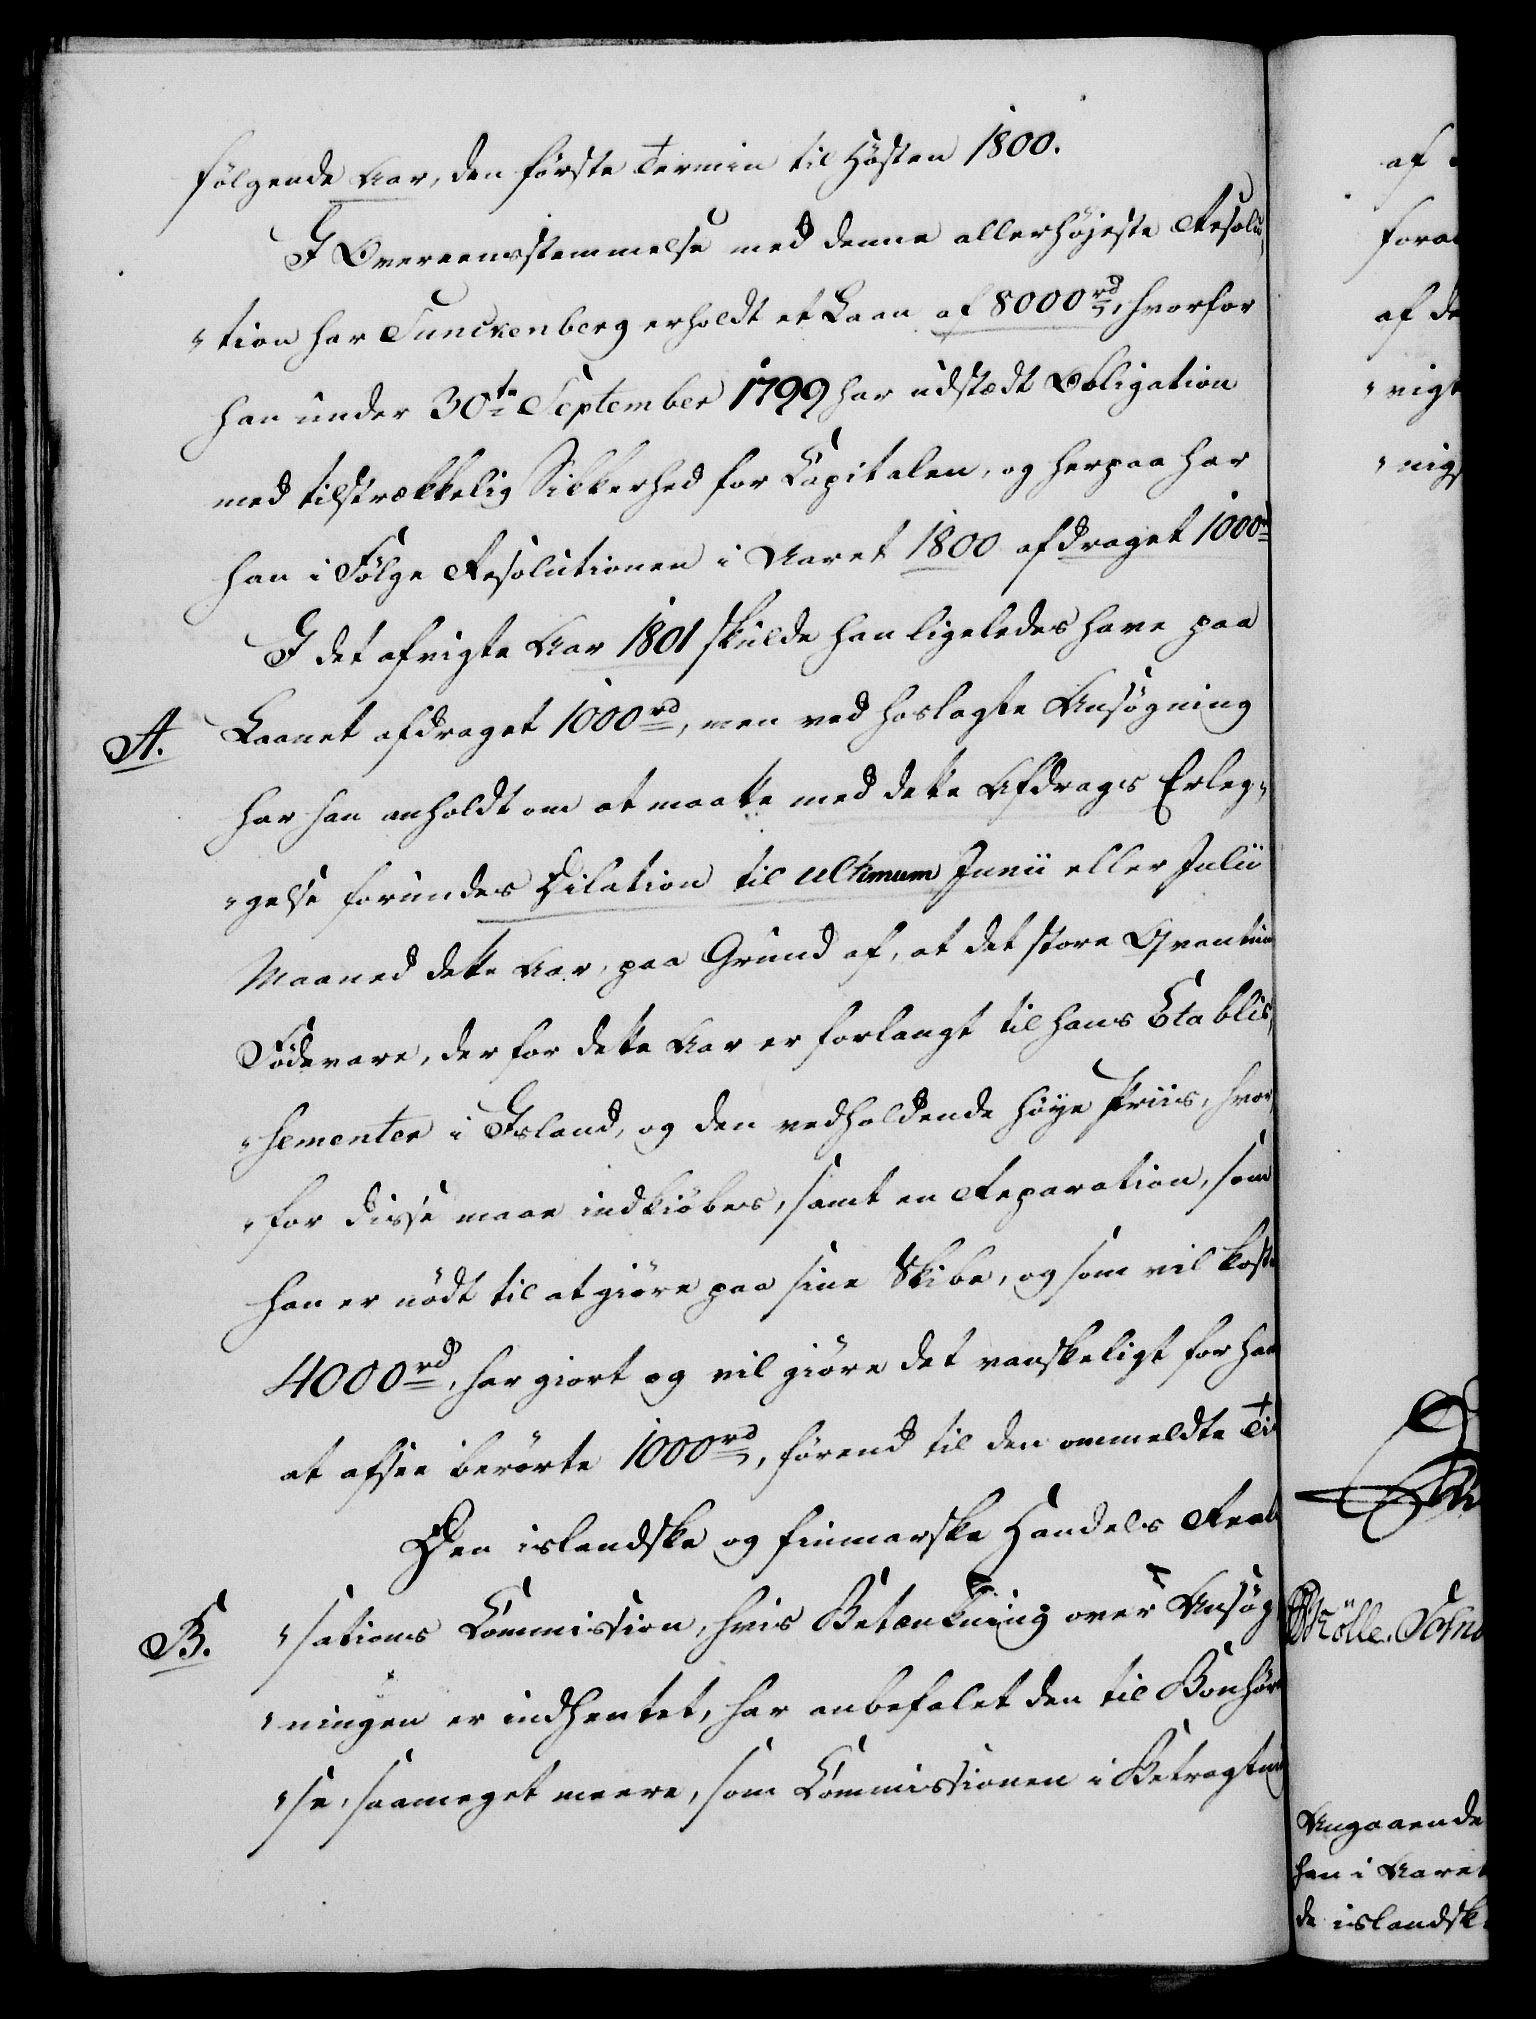 følgende Aar, den første Termin til Høsten 1800.
I Overeensstemmelse med denne allerhøjeste Resolu,
"tion har Sunckenberg erholdt et Laan af 8000 rd, hvorfor
han under 30te September 1799 har udstædt Obligation
med tilstrækkelig Sikkerhed for Capitalen, og herpaa har
han i Følge Resolutionen i Aaret 1800 afdraget 1000 rd
I det afvigte Aar 1801 skulde han ligeledes have paa
A. Laanet afdraget 1000 rd, men ved hoslagte Ansøgning
har han anholdt om at maatte med dette Afdrags Erleg,
"gelse forundes Dilation til ultimum Junii eller Julii
Maaned dette Aar, paa Grund af, at det store Qvantum
Fødevare, der for dette Aar er forlangt til hans Etablis,
"sementer i Island, og den vedholdende høye Priis, hvor
"for disse maae indkiøbes, samt en Reparation, som
han er nødt til at giøre paa sine Skibe, og som vil koste
4000 rd, har giort og vil giøre det vanskeligt for ham
at afsee berørte 1000 rd, førend til den ommeldte Tid
Den islandske og finmarske Handels Reali
B. "sations Commission, hvis Betænkning over Ansøg
"ningen er indhentet, har anbefalet den til Bønhørel
"se, saameget meere, som Commissionen i Betragtning
af
foran
af de
"vigt
"nigs
Mølle. Schm
Angaaende
han i Aaret
de islandske